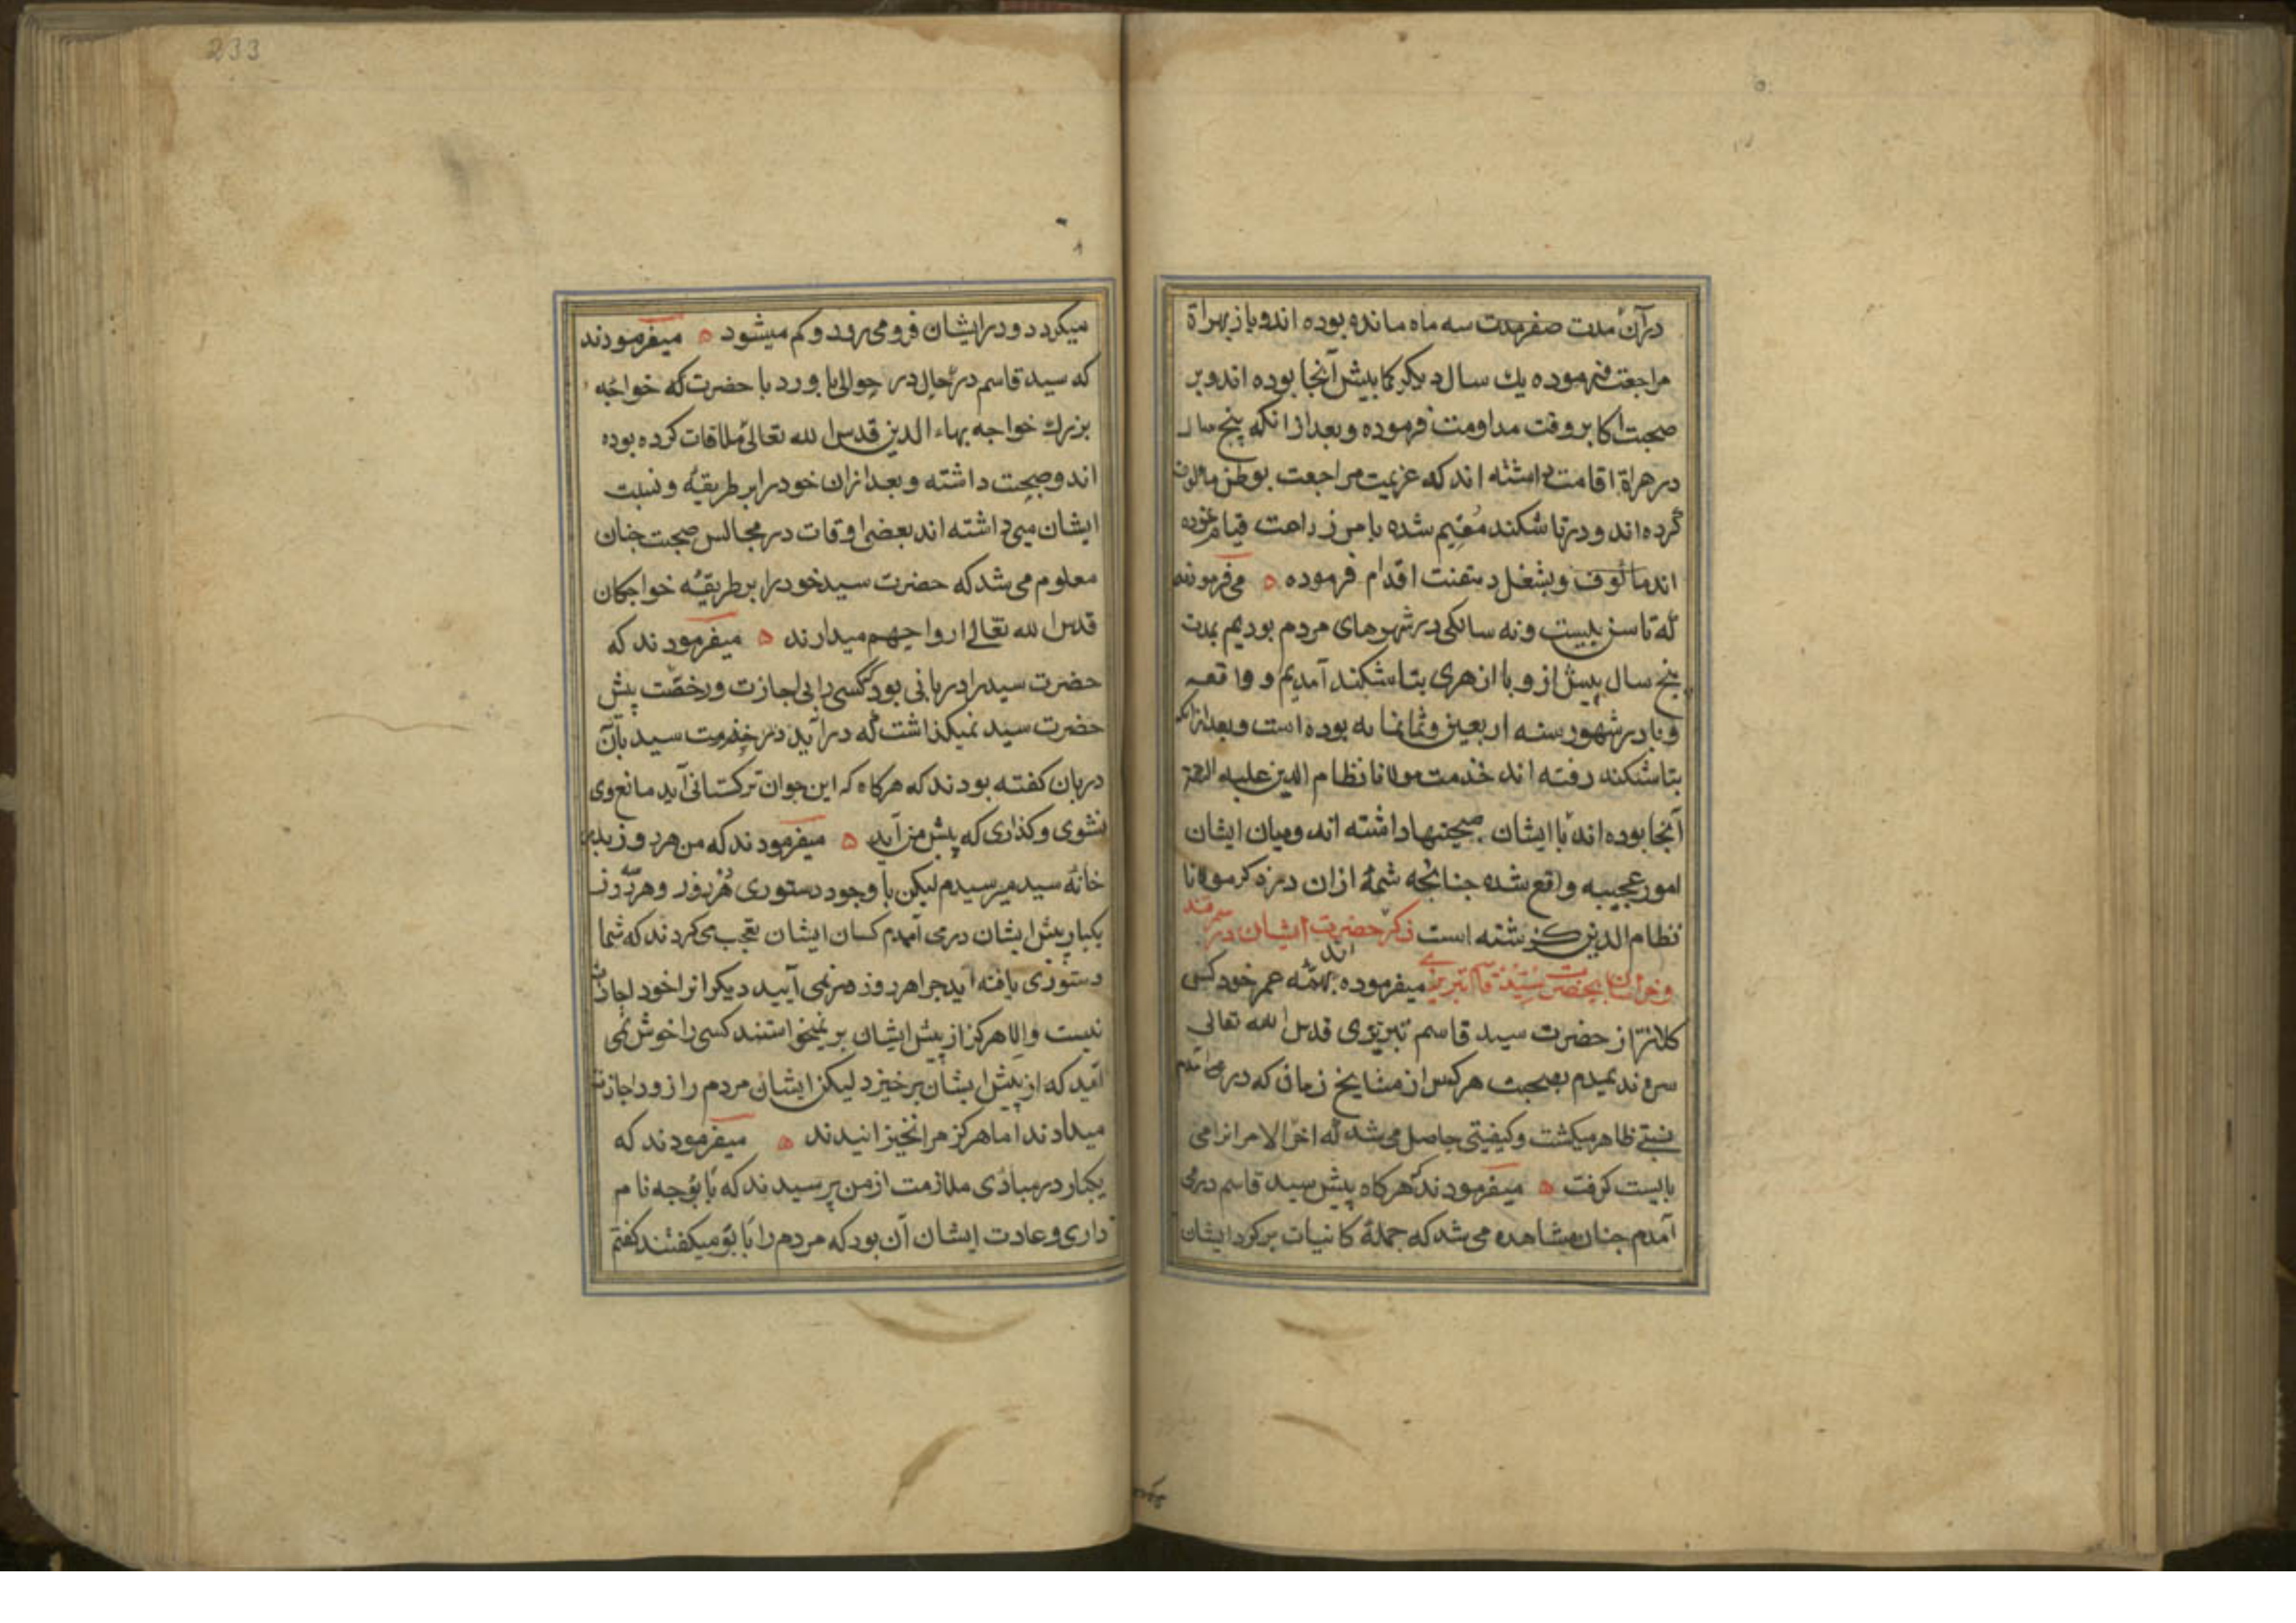 درآن مدت صفر مدت سه ماه مانده بوده اند و باز بهراة
مراجعت فرموده یك سال دیگر کما بیش آنجا بوده اند و بر
صحبت اکابر وقت مداومت فرموده و بعد از انکه پنج سال
در هراة اقامت داشته اند که عزیمت مراجعت بوطن مالوف
کرده اند و در تاشکند مقیم شده بامر زراعت قیام نموده
اند مالوف و بشغل دهقنت اقدام فرموده ه می فرمودند
که تا سن بیست و نه سالکی در شهرهای مردم بودیم بمدت
پنج سال پیش از وبا از هری بتاشکند آمدیم و واقعه
وبا در شهور سنه اربعین و ثمانمایه بوده است و بعد از انکه
بتاشکند رفته اند خدمت مولانا نظام الدین علیه الرحمة
آنجا بوده اند با ایشان صحبتها داشته اند و میان ایشان
امور عجیبه واقع شده جنانجه شمۀ ازان در ذکر مولانا
نظام الدین کذشته است ذکر حضرت ایشان در سمرقند
و خراسان بحضرت سید قاسم تبریزی میفرموده اند همه عمر خود کس
کلانتر از حضرت سید قاسم تبریزی قدس الله تعالی
سره ندیدم بصحبت هر کس از مشایخ زمان که در می آمدم
نسبتے ظاهر میکشت و کیفیتی حاصل می شد که اخر الامر انرا می
بایست کرفت ه میفرمودند که هرکاه پیش سید قاسم در می
آمدم جنان مشاهده می شد که جملۀ کائنات بر کرد ایشان
233
میکردد و در ایشان فرو می رود و کم میشود ه میفرمودند
که سید قاسم در حال در حوالی باورد با حضرت که خواجه
بزرك خواجه بهاء الدین قدس الله تعالی ملاقات کرده بوده
اند و صحبت داشته و بعد ازان خود را بر طریقه و نسبت
ایشان می داشته اند بعضی اوقات در مجالس صحبت جنان
معلوم می شد که حضرت سید خود را بر طریقۀ خواجکان
قدس الله تعالی ارواحهم میدارند ه میفرمودند که
حضرت سید را دربانی بود که کسی را بی اجازت و رخصت پیش
حضرت سید نمیکذاشت که در آید در خدمت سید بآن
دربان کفته بودند که هرکاه که این جوان ترکستانی آید مانع وی
نشوی و کذاری که پیش من آید ه میفرمودند که من هر روز بدر
خانۀ سید میرسیدم لیکن با وجود دستوری هر روز و هر دو روز
یکبار پیش ایشان در می آمدم کسان ایشان تعجب می کردند که شما
دستوری یافته اید جرا هر روز در نمی آیید دیکرانرا خود اجازت
نیست و الا هرکز از پیش ایشان بر نمیخواستند کسی را خوش نمی
آمد که از پیش ایشان برخیزد لیکن ایشان مردم را زود اجازت
میدادند اما هرکز مرا نخیزانیدند ه میفرمودند که
یکبار در مبادی ملازمت از من پرسیدند که بابو جه نام
داری و عادت ایشان آن بود که مردم را بابو میکفتند کفتم